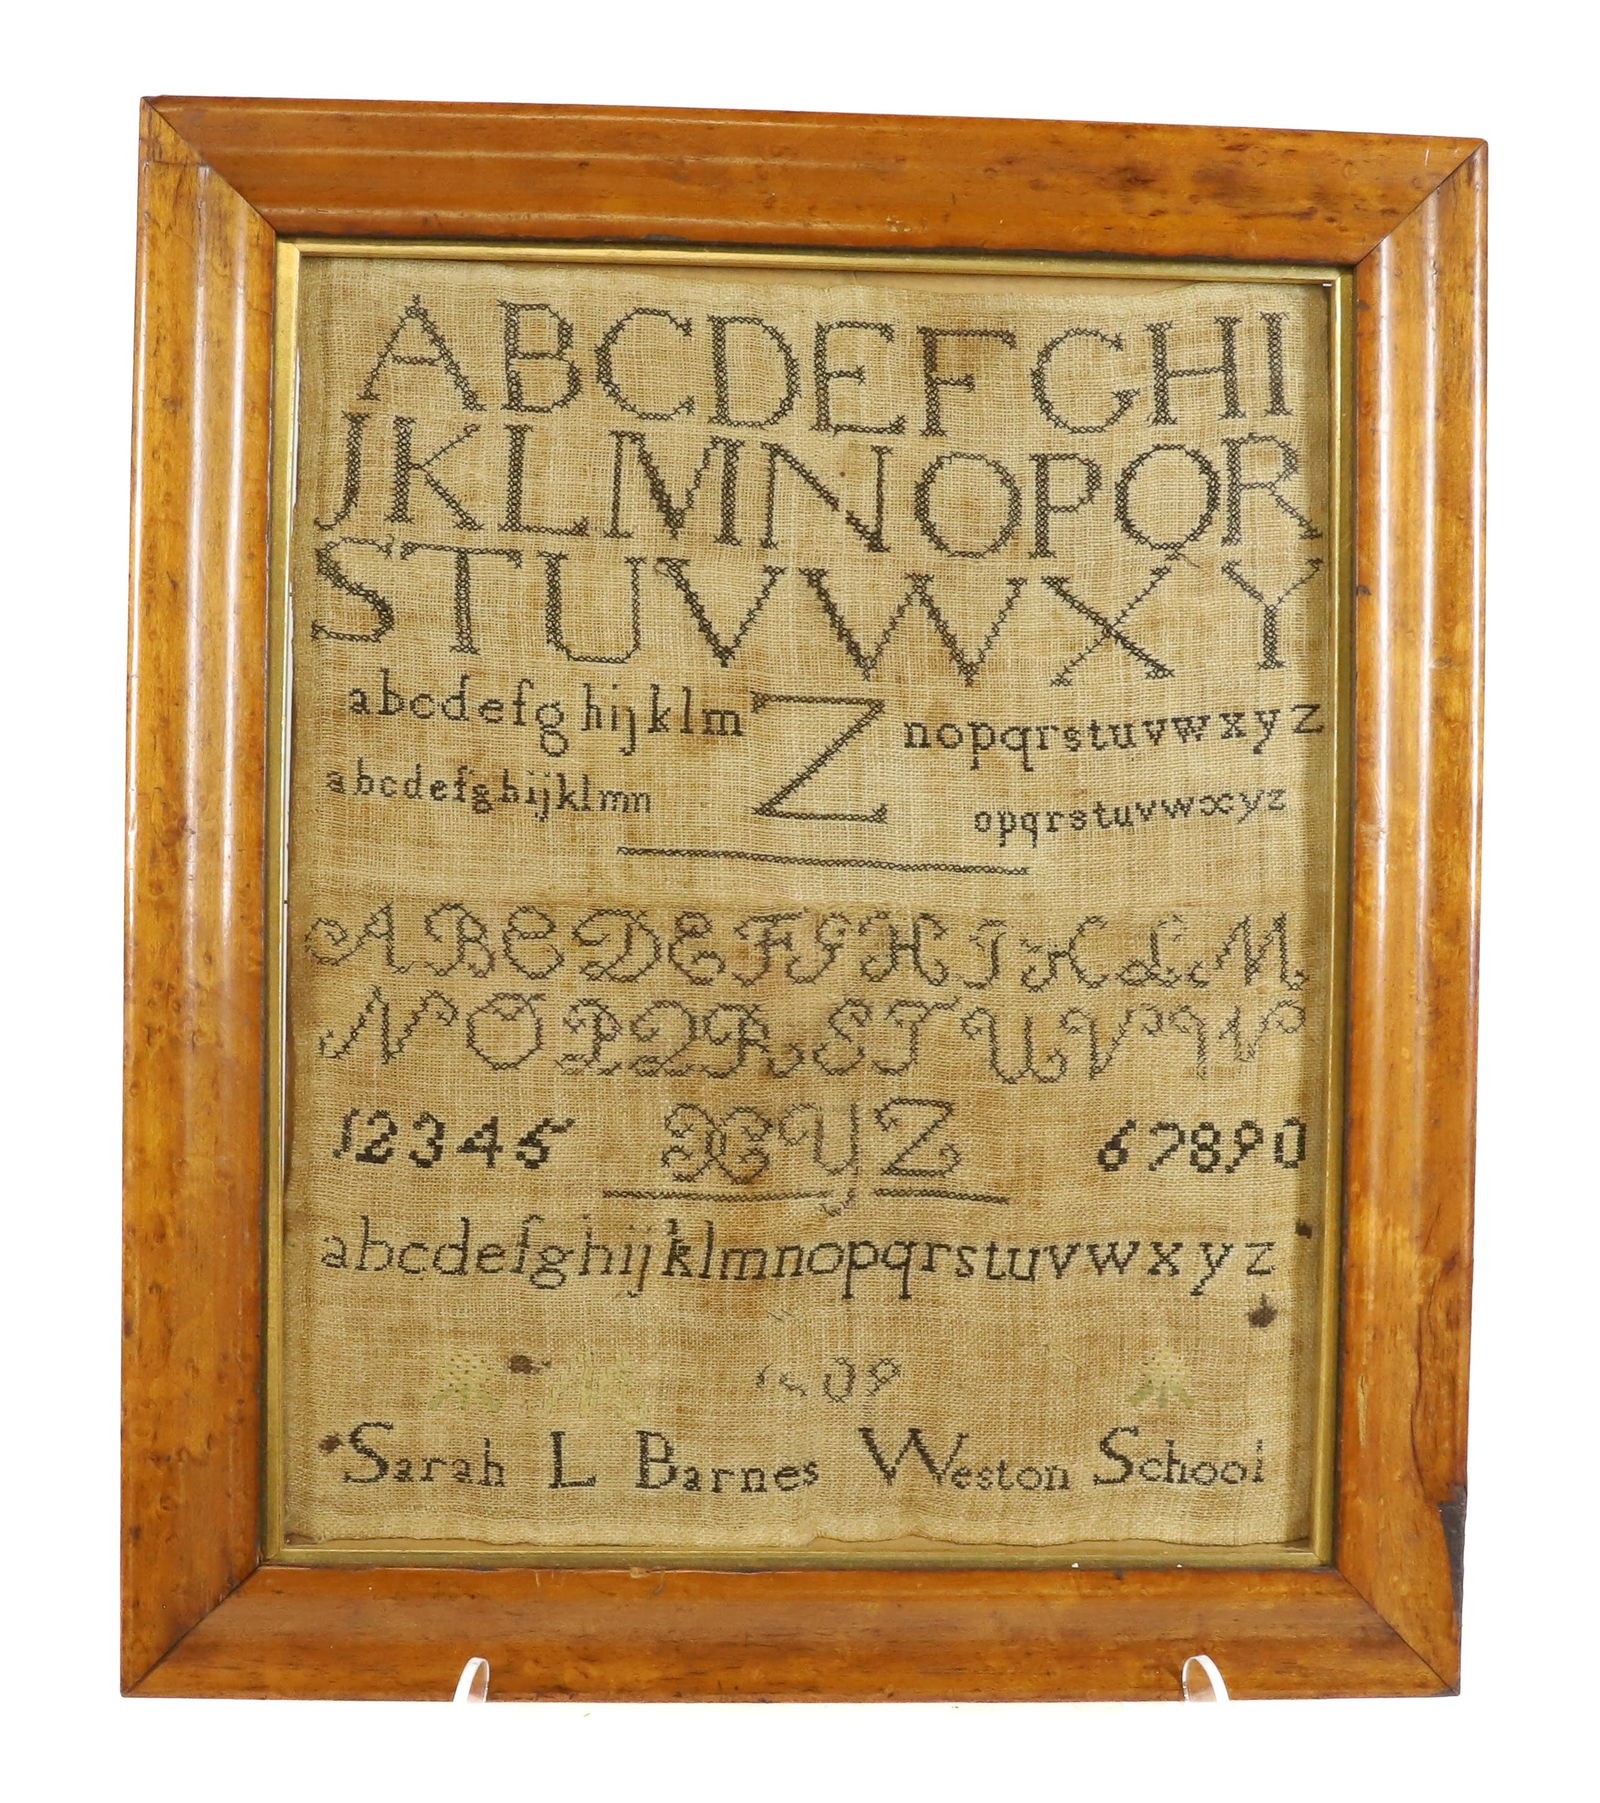 ABCDEFGHI
JKLMNOPQR
STUVWXY
abcdefghijklm Z nopqrstuvwxyz
abcdefghijklmn opqrstuvwxyz
ABCDEFGHIKLM
NOPQRSTUVW
12345 XYZ 67890
abcdefghijklmnopqrstuvwxyz
Sarah L Barnes Weston School